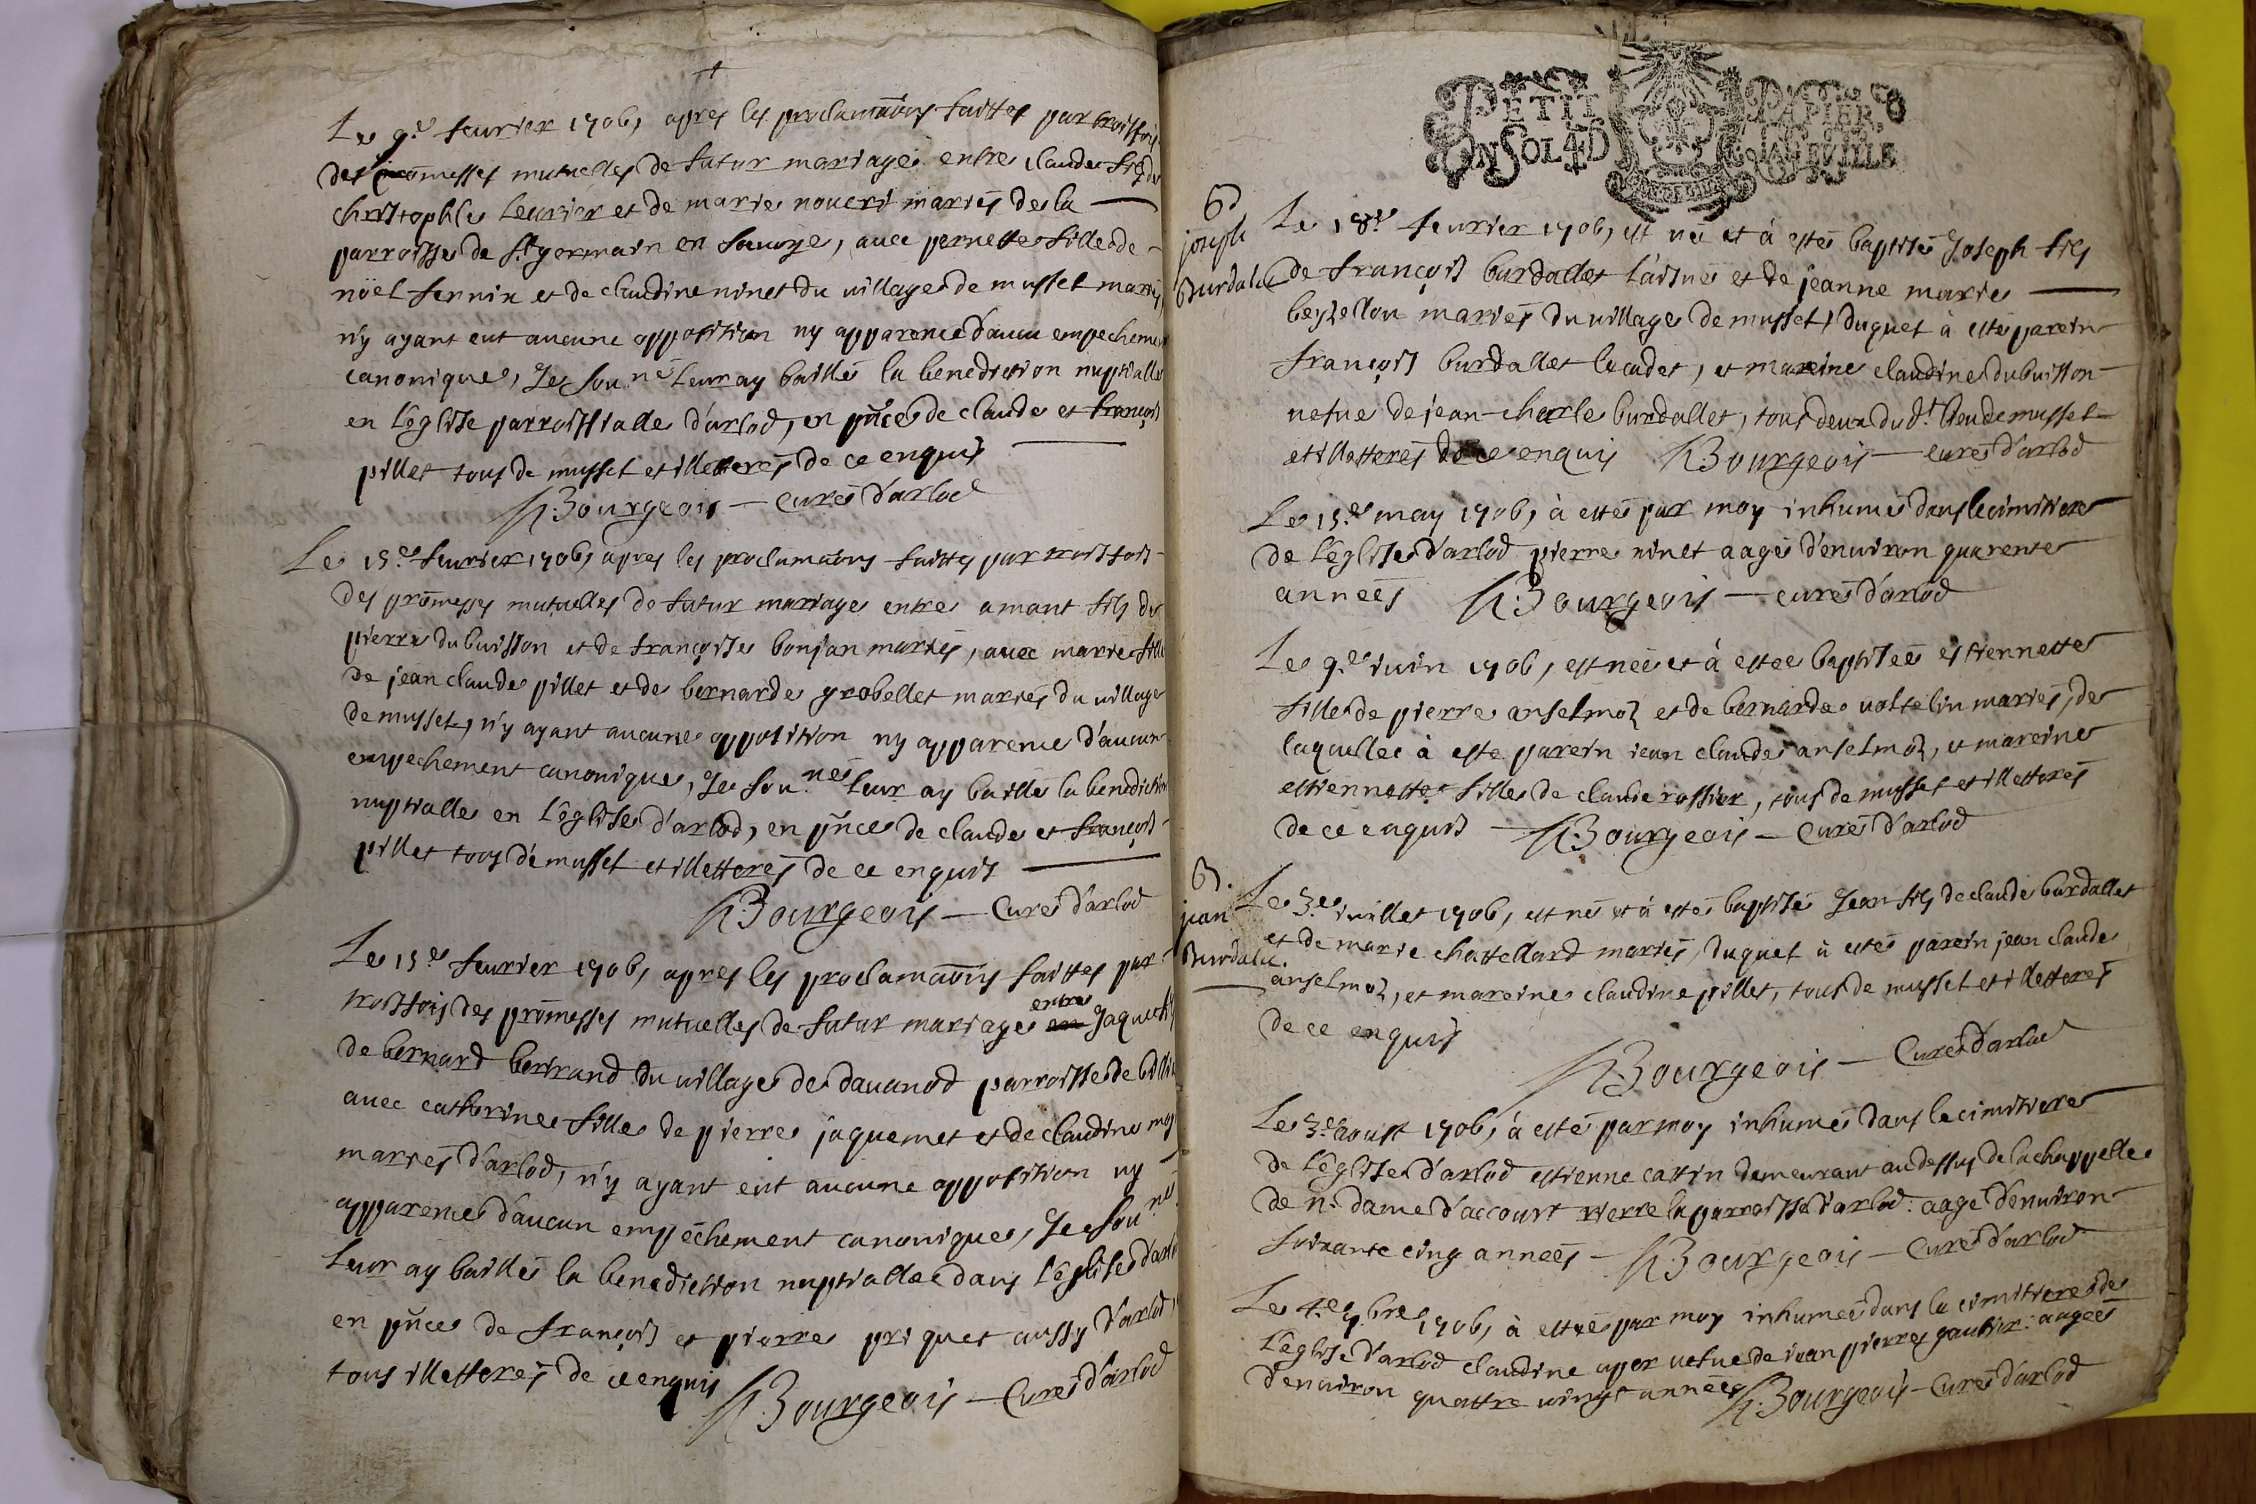 Le 9.e feurier 1706, apres les proclamaons faittes par trois fois
des promesses mutuelles de futur mariage entre claude fils de
christophle leurier et de marie mariés de la
parroisse de St germain en sauoye, auec pernette fille de
noël fennix et de claudine ninet du uillage de musset mariés
n'y ayant eut aucune opposition ny apparence d'aucu empechement
canonique, Je sou.né leur ay baillé la benediction nuptialle
en l'eglise parroissialle d'arlod, en pnce de claude et françois
pillet tous de musset et illetterés de ce enquis
Bourgeois curé d'arlod
Le 15.e feurier 1706, apres les proclamaons faittes par trois fois
des promesses mutuelles de futur mariage entre amant fils de
pierre dubuisson et de françoise bonjan mariés, auec marie fille
de jean claude pillet et de bernarde grobellet mariés du uillage
de musset, n'y ayant aucune opposition ny apparence d'aucun
empechement canonique, Je sou.né leur ay baillé la benediction
nuptialle en l'eglise d'arlod, en pnce de claude et françois
pillet tous de musset et illetterés de ce enquis
Bourgeois curé d'arlod
Le 15.e feurier 1706, apres les proclamaons faittes par
trois fois des promesses mutuelles de futur mariage entre Jaque fils
de bernard bertrand du uillage de dauanod parroisse de billia
auec catherine fille de pierre jaquemet et de claudine
mariés d'arlod, n'y ayant eut aucune opposition ny
apparence d'aucun empéchement canonique, Je sou.né
leur ay baillé la benediction nuptialle dans l'eglise d'arlod
en pnce de françois et pierre priquet aussy d'arlod,
tous illetterés de ce enquis
Bourgeois curé d'arlod
PETIT PAPIER
UN SOL 4 D LA FEVILLE
B
joseph
Burdalet
Le 18.e feurier 1706, est né et à esté baptisé Joseph fils
de françois burdallet l'aisné et de jeanne marie
beyzellon mariés du uillage de musset, duquel à esté parein
françois burdallet le cadet, et mareine claudine dubuisson
uefue de jean-charle burdallet, tous deux du dt lieu de musset
et illetterés de ce enquis Bourgeois curé d'arlod
Le 15.e may 1706, à esté par moy inhumé dans le cimitiere
de l'eglise d'arlod pierre ninet aagé d'enuiron quarente
années Bourgeois curé d'arlod
Le 9.e iuin 1706, est née et à estee baptisée estiennette
fille de pierre anselmoz et de bernarde uoltelin mariés, de
laquellee à este parein iean claude anselmoz, et mareine
estiennette fille de claude rossier, tous de musset et illetterés
de ce enquis Bourgeois curé d'arlod
B.
jean
Burdalet.
Le 3.e iuillet 1706, est né et à esté baptisé Jean fils de claude burdallet
et de marie chattellard mariés, duquel à esté parein jean claude
anselmoz, et mareine claudine pillet, tous de musset et illetterés
de ce enquis
Bourgeois curé d'arlod
Le 3.e aoust 1706, à esté par moy inhumé dans le cimitiere
de l'eglise d'arlod estienne cattin demeurant au dessus de la chappelle
de n. dame d'accourt riere la parroisse d'arlod: aagé d'enuiron
soixante cinq années Bourgeois curé d'arlod
Le 4.e 9.bre 1706, à esté par moy inhumée dans la cimitiere de
l'eglise d'arlod claudine uefue de iean pierre gaultier: aagée
d'enuiron quattre uingt années Bourgeois curé d'arlod